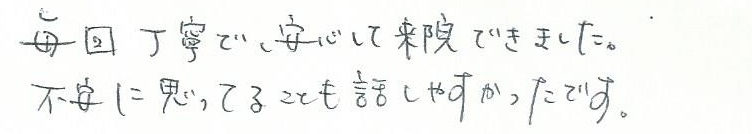 毎回丁寧で、安心して来院できました。
不安に思ってることも話しやすかったです。